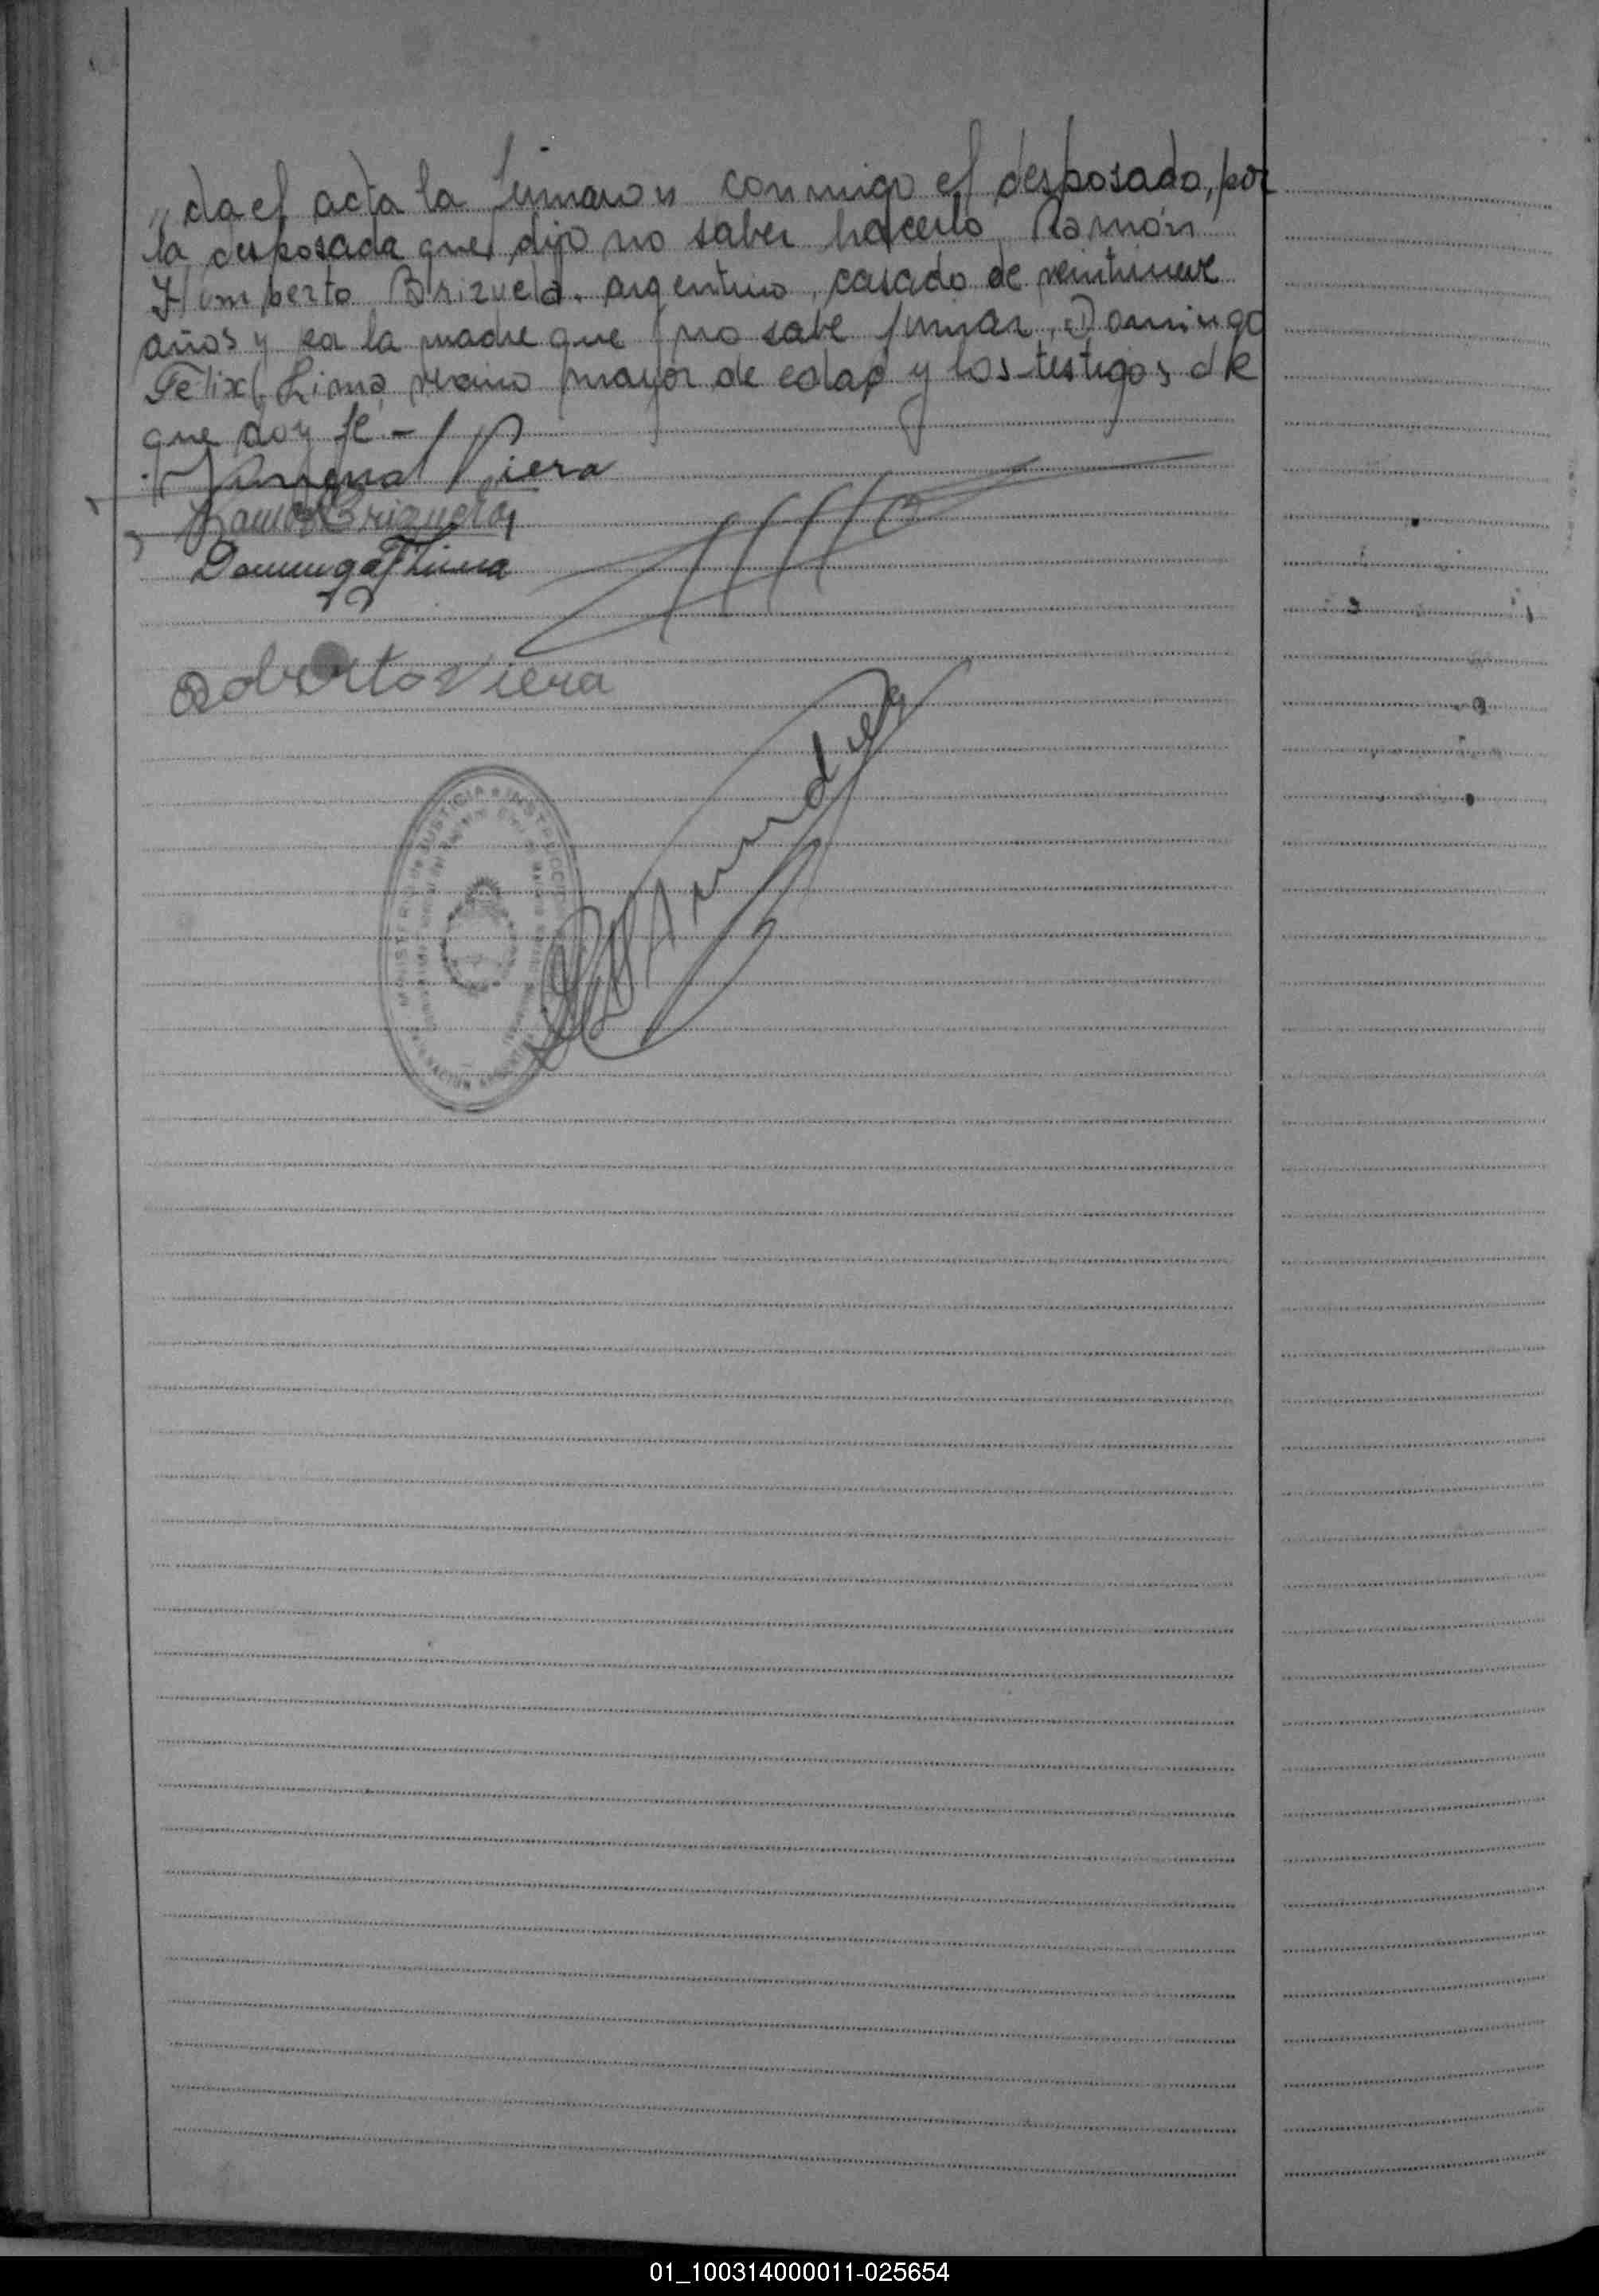 "da el acta la firmaron conmigo el desposado, por
la desposada que dijo no saber hacerlo, Ramón
Humberto Brizuela. argentino, casado de veintinueve
años y por la madre que no sabe firmar, Domingo
Felix Lima, vecino mayor de edad y los testigos de
que doy fé -
Viera
Ramon Brizuela
Domingo F Lima
Roberto Viera
MINISTERIO DE JUSTICIA E INSTRUCCION
NACION
01_100314000011-025654